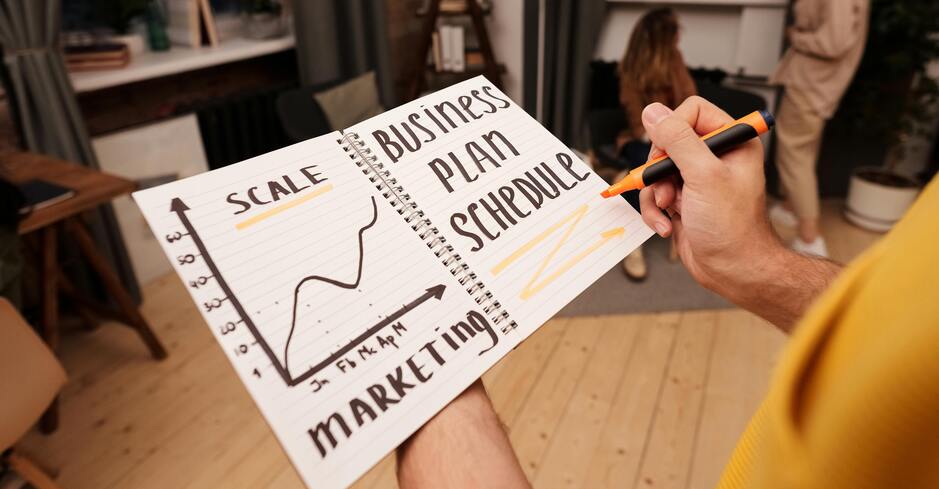 SCALE
50
50
40
30
20
10
1
Jn Fb Mc Ap M
MARKETINg
BUSINESS
PLAN
SCHEDULE